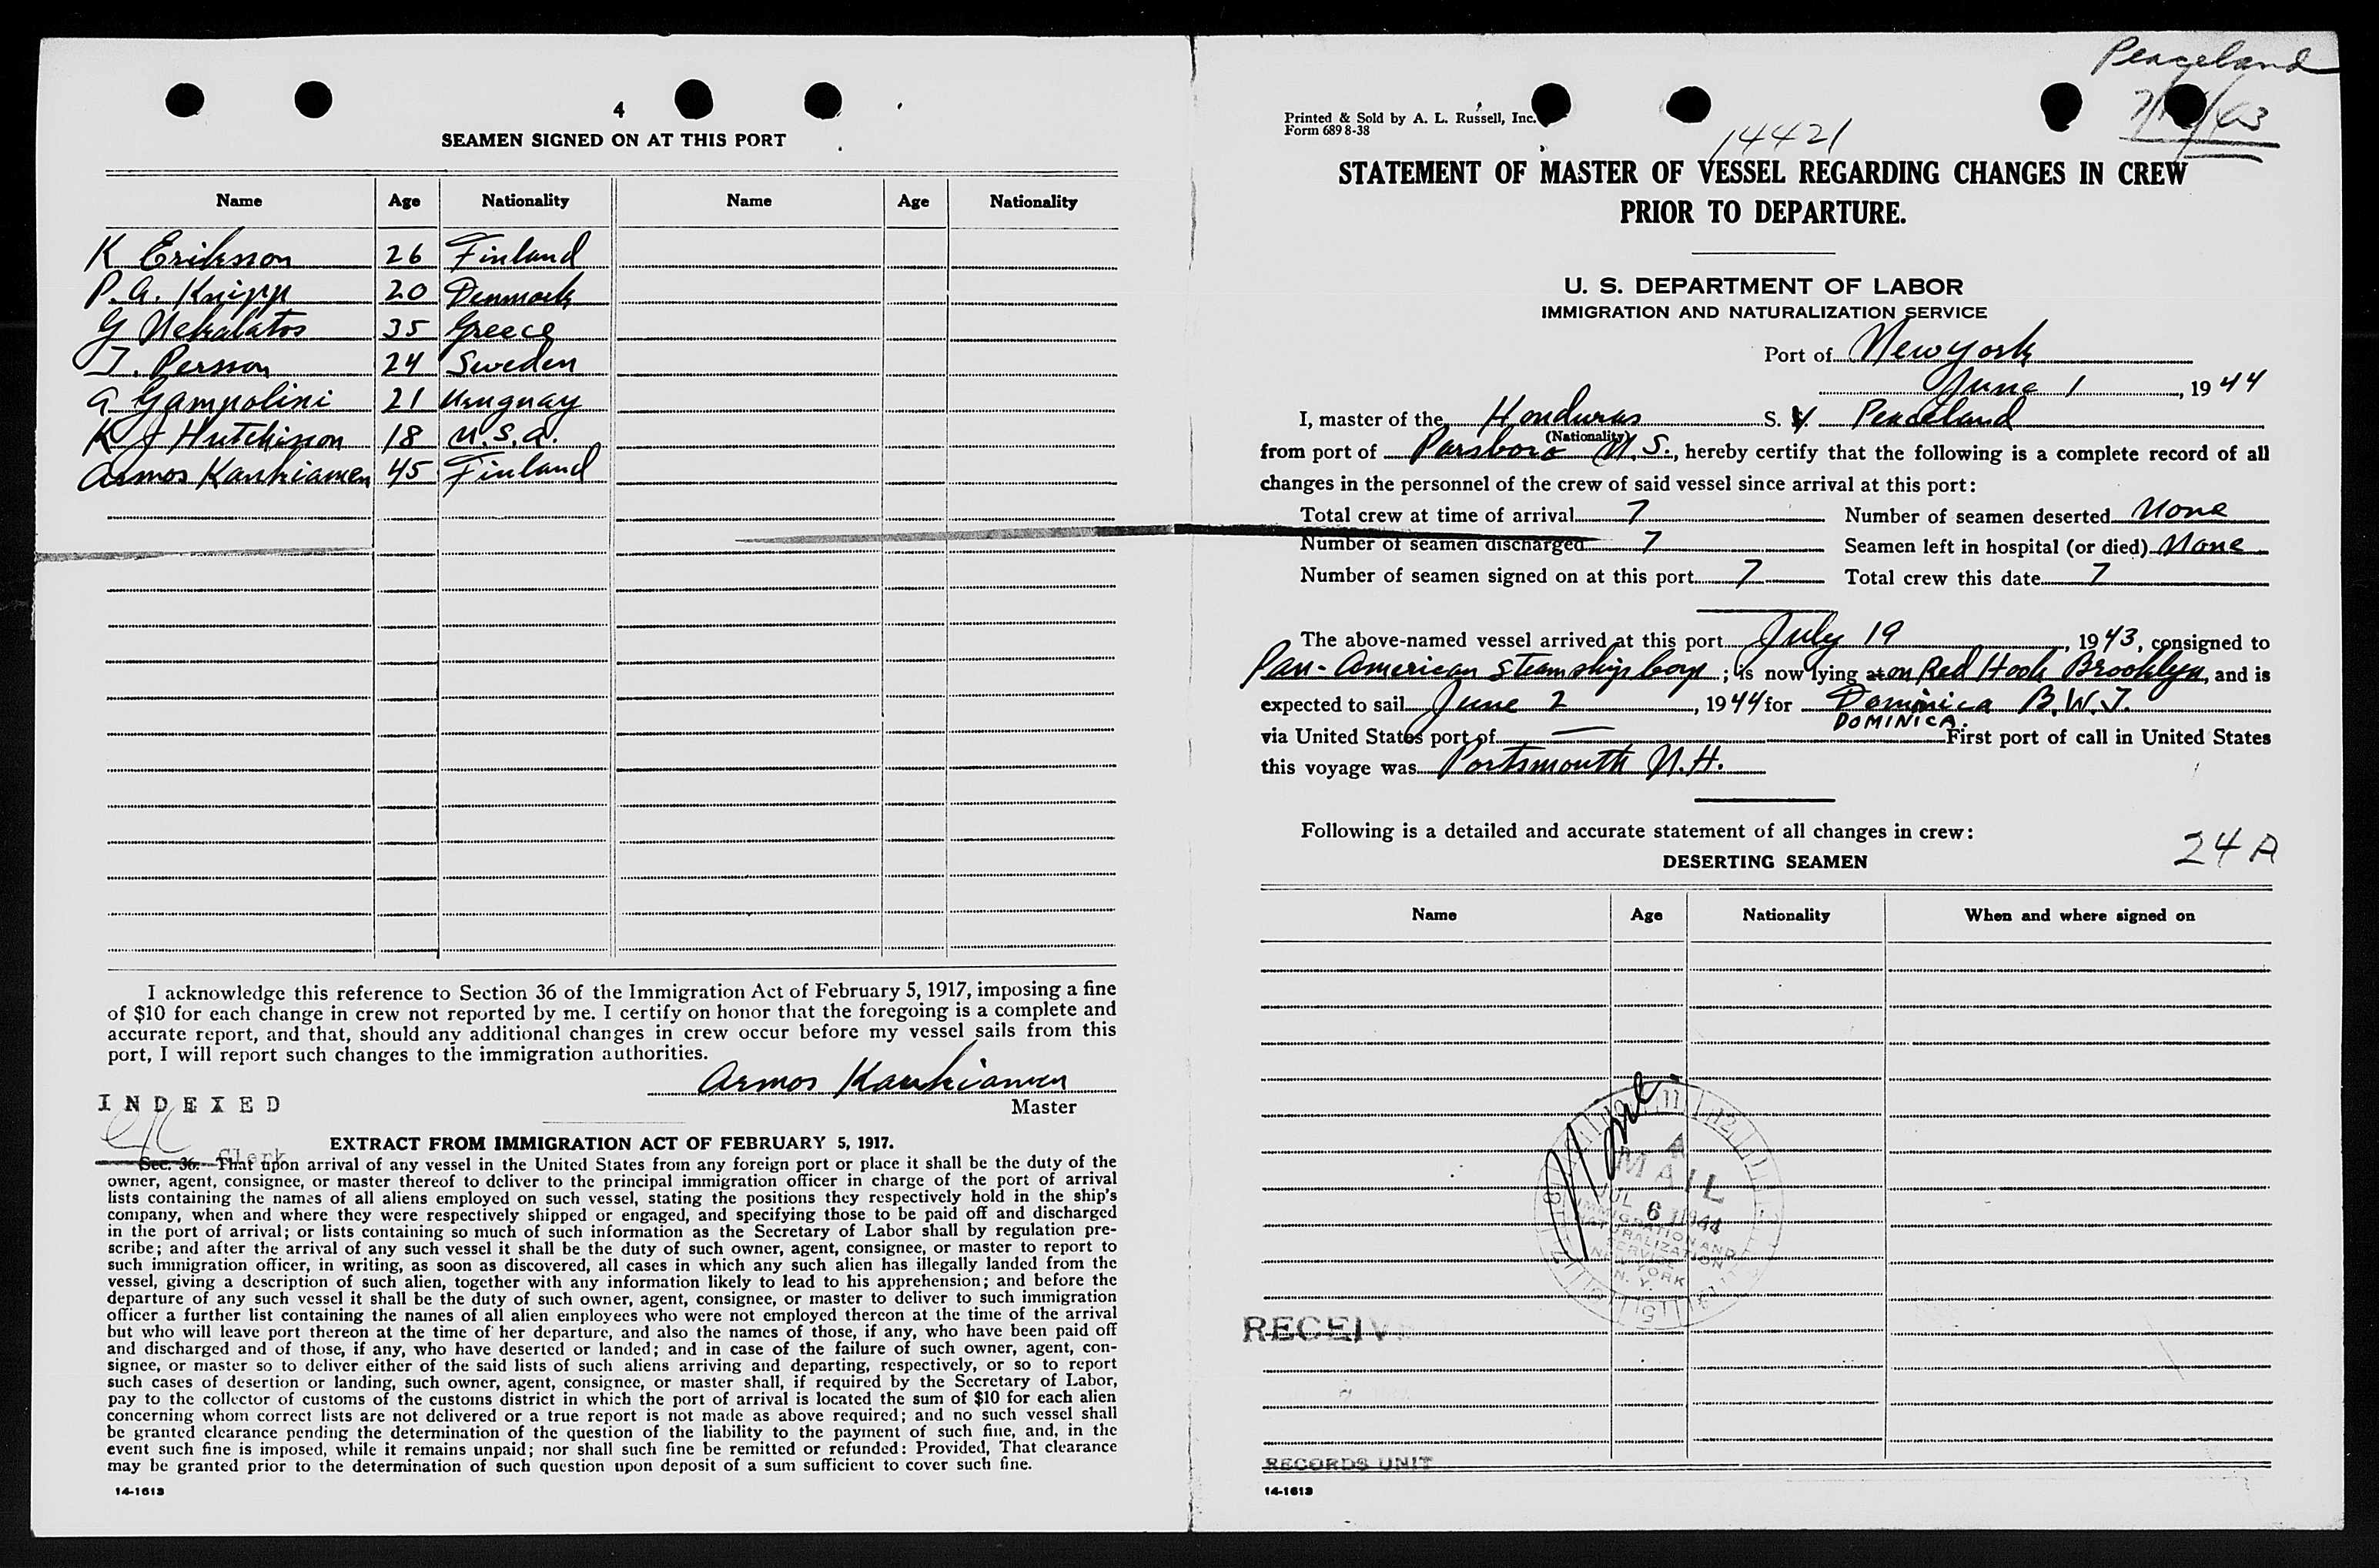 4
SEAMEN SIGNED ON AT THIS PORT
Name Age Nationality Name Age Nationality
K Eriksson 26 Finland
P. A. Knipp 20 Denmark
G Nekalatos 35 Greece
T. Persson 24 Sweden
G Gampolini 21 Uruguay
K J Hutchison 18 U.S.A.
Armos Kauhiamen 45 Finland
I acknowledge this reference to Section 36 of the Immigration Act of February 5, 1917, imposing a fine
of $10 for each change in crew not reported by me. I certify on honor that the foregoing is a complete and
accurate report, and that, should any additional changes in crew occur before my vessel sails from this
port, I will report such changes to the immigration authorities.
Armos Kauhiamen
Master
INDEXED
Clerk
EXTRACT FROM IMMIGRATION ACT OF FEBRUARY 5, 1917.
Sec. 36. That upon arrival of any vessel in the United States from any foreign port or place it shall be the duty of the
owner, agent, consignee, or master thereof to deliver to the principal immigration officer in charge of the port of arrival
lists containing the names of all aliens employed on such vessel, stating the positions they respectively hold in the ship's
company, when and where they were respectively shipped or engaged, and specifying those to be paid off and discharged
in the port of arrival; or lists containing so much of such information as the Secretary of Labor shall by regulation pre-
scribe; and after the arrival of any such vessel it shall be the duty of such owner, agent, consignee, or master to report to
such immigration officer, in writing, as soon as discovered, all cases in which any such alien has illegally landed from the
vessel, giving a description of such alien, together with any information likely to lead to his apprehension; and before the
departure of any such vessel it shall be the duty of such owner, agent, consignee, or master to deliver to such immigration
officer a further list containing the names of all alien employees who were not employed thereon at the time of the arrival
but who will leave port thereon at the time of her departure, and also the names of those, if any, who have been paid off
and discharged and of those, if any, who have deserted or landed; and in case of the failure of such owner, agent, con-
signee, or master so to deliver either of the said lists of such aliens arriving and departing, respectively, or so to report
such cases of desertion or landing, such owner, agent, consignee, or master shall, if required by the Secretary of Labor,
pay to the collector of customs of the customs district in which the port of arrival is located the sum of $10 for each alien
concerning whom correct lists are not delivered or a true report is not made as above required; and no such vessel shall
be granted clearance pending the determination of the question of the liability to the payment of such fine, and, in the
event such fine is imposed, while it remains unpaid; nor shall such fine be remitted or refunded: Provided, That clearance
may be granted prior to the determination of such question upon deposit of a sum sufficient to cover such fine.
14-1613
Peaceland
Printed & Sold by A. L. Russell, Inc.
Form 689 8-38
14421
STATEMENT OF MASTER OF VESSEL REGARDING CHANGES IN CREW
PRIOR TO DEPARTURE.
U. S. DEPARTMENT OF LABOR
IMMIGRATION AND NATURALIZATION SERVICE
Port of New York
June 1, 1944
I, master of the Honduras S. V. Peaceland
(Nationality)
from port of Parsboro N.S., hereby certify that the following is a complete record of all
changes in the personnel of the crew of said vessel since arrival at this port:
Total crew at time of arrival 7 Number of seamen deserted None
Number of seamen discharged 7 Seamen left in hospital (or died) None
Number of seamen signed on at this port 7 Total crew this date 7
The above-named vessel arrived at this port July 19, 1943, consigned to
Pan-American Steamship Corp; is now lying at on Red Hook Brooklyn, and is
expected to sail June 2, 1944 for Dominica B.W.I.
DOMINICA.
via United States port of — First port of call in United States
this voyage was Portsmouth N.H.
Following is a detailed and accurate statement of all changes in crew:
24 A
DESERTING SEAMEN
Name Age Nationality When and where signed on
None
A
MAIL
JUL 6 1944
IMMIGRATION AND
NATURALIZATION
SERVICE
NEW YORK
N. Y.
RECEIV
RECORDS UNIT
14-1613